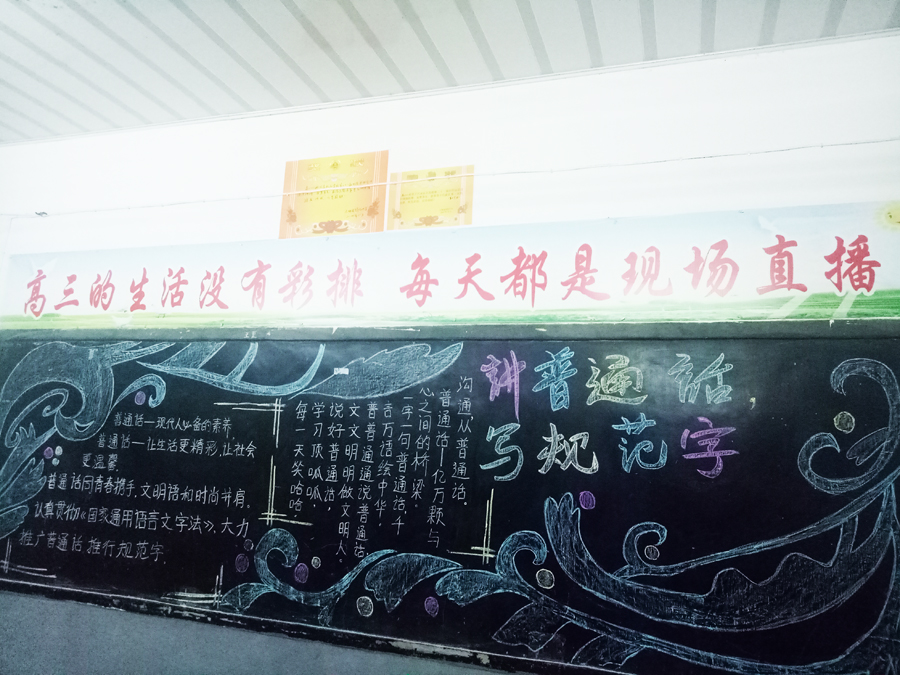 高三的生活没有彩排 每天都是现场直播
讲普通话
写规范字
普通话—现代人必备的素养
普通话—让生活更精彩,让社会
更温馨
普通话同青春携手,文明语和时尚并肩。
认真贯彻《国家通用语言文字法》,大力
推广普通话 推行规范字.
沟通从普通话。
普通话,亿万颗与
心之间的桥梁。
一字一句普通话,千
言万话绘中华!
普普通通说普通话,
文文明明做文明人。
说好普通话,
学习顶呱呱,
每一天笑哈哈。